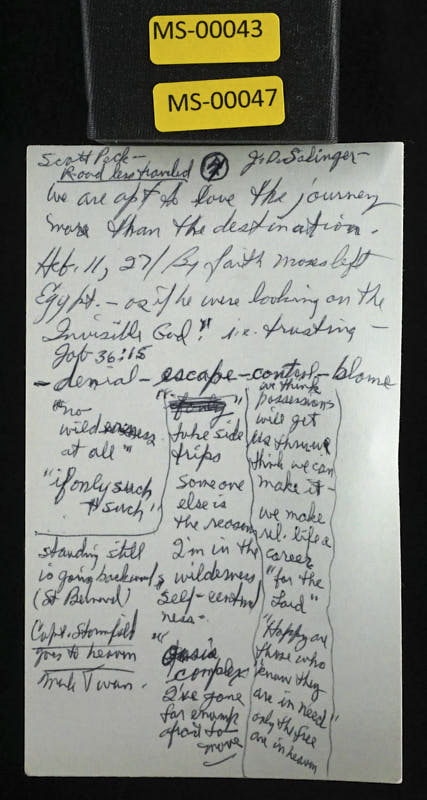 MS-00043
MS-00047
Scott Peck- ④ J.D. Salinger-
Road less traveled
We are apt to love the journey
more than the destination.
Heb. 11, 27/ By faith moses left
Egypt. - as if he were looking on the
Invisible God." i.e. trusting -
Job 36:15
- denial - escape - control - blame
"no
wilderness
at all"
"if only such
& such"
standing still
is going backwards
(St Bernard)
Capt. Stormfield
goes to heaven
Mark Twain.
take side
trips
someone
else is
the reason
I'm in the
wilderness
self-centred
ness-
"Oasis
complex
I've gone
far enough
afraid to
move
we think
possessions
will get
us through
think we can
make it -
we make
rel. life a
career
"for the
Lord"
"Happy are
those who
know they
are in need"
only the free
are in heaven